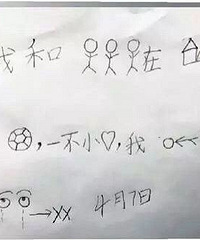 我和在
，一不小，我
→XX 4月7日